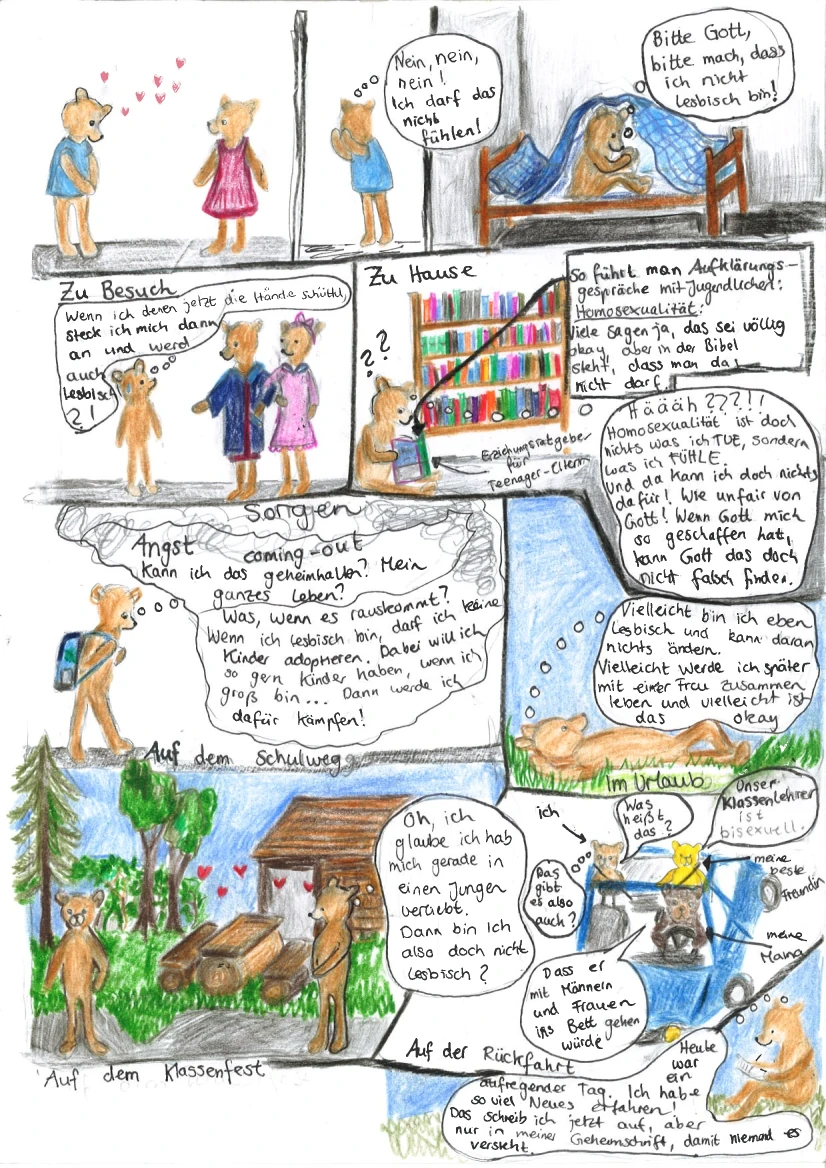 Nein, nein,
nein!
Ich darf das
nicht
fühlen!
Bitte Gott,
bitte mach, dass
ich nicht
lesbisch bin!
Zu Besuch
Wenn ich denen jetzt die Hände schüttel,
steck ich mich dann
an und werd
auch
lesbisch
?!
Zu Hause
??
Erziehungsratgeber
für
Teenager-Eltern
So führt man Aufklärungs-
gespräche mit Jugendlichen:
Homosexualität:
Viele sagen ja, das sei völlig
okay, aber in der Bibel
steht, dass man das
nicht darf.
Häääh ???!!
Homosexualität ist doch
nichts was ich TUE, sondern
was ich FÜHLE.
Und da kann ich doch nichts
dafür! Wie unfair von
Gott! Wenn Gott mich
so geschaffen hat,
kann Gott das doch
nicht falsch finden.
Sorgen
Angst coming-out
Kann ich das geheimhalten? Mein
ganzes Leben?
Was, wenn es rauskommt?
Wenn ich lesbisch bin, darf ich keine
Kinder adoptieren. Dabei will ich
so gern Kinder haben, wenn ich
groß bin... Dann werde ich
dafür kämpfen!
Auf dem Schulweg
Vielleicht bin ich eben
lesbisch und kann daran
nichts ändern.
Vielleicht werde ich später
mit einer Frau zusammen
leben und vielleicht ist
das okay
Im Urlaub
Oh, ich
glaube ich hab
mich gerade in
einen Jungen
verliebt.
Dann bin ich
also doch nicht
lesbisch?
Auf dem Klassenfest
ich
Was
heißt
das?
Unser
Klassenlehrer
ist
bisexuell.
Das
gibt
es also
auch?
meine
beste
Freundin
meine
Mama
Dass er
mit Männern
und Frauen
ins Bett gehen
würde
Auf der Rückfahrt
Heute
war
ein
aufregender Tag. Ich habe
so viel Neues erfahren!
Das schreib ich jetzt auf, aber
nur in meiner Geheimschrift, damit niemand es
versteht.